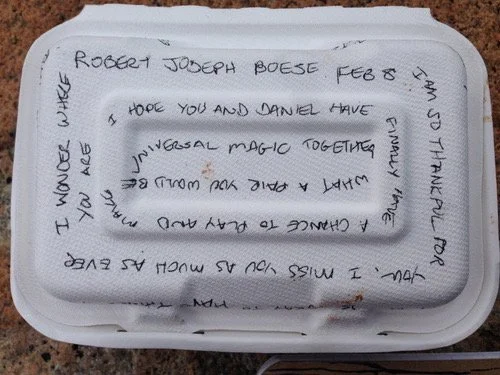 ROBERT JOSEPH BOESE FEB 8
I AM SO THANKFUL FOR
YOU. I MISS YOU AS MUCH AS EVER
I WONDER WHERE
YOU ARE
I HOPE YOU AND DANIEL HAVE
FINALLY HAVE
A CHANCE TO PLAY AND
MAKE
UNIVERSAL MAGIC TOGETHER
WHAT A PAIR YOU WOULD BE